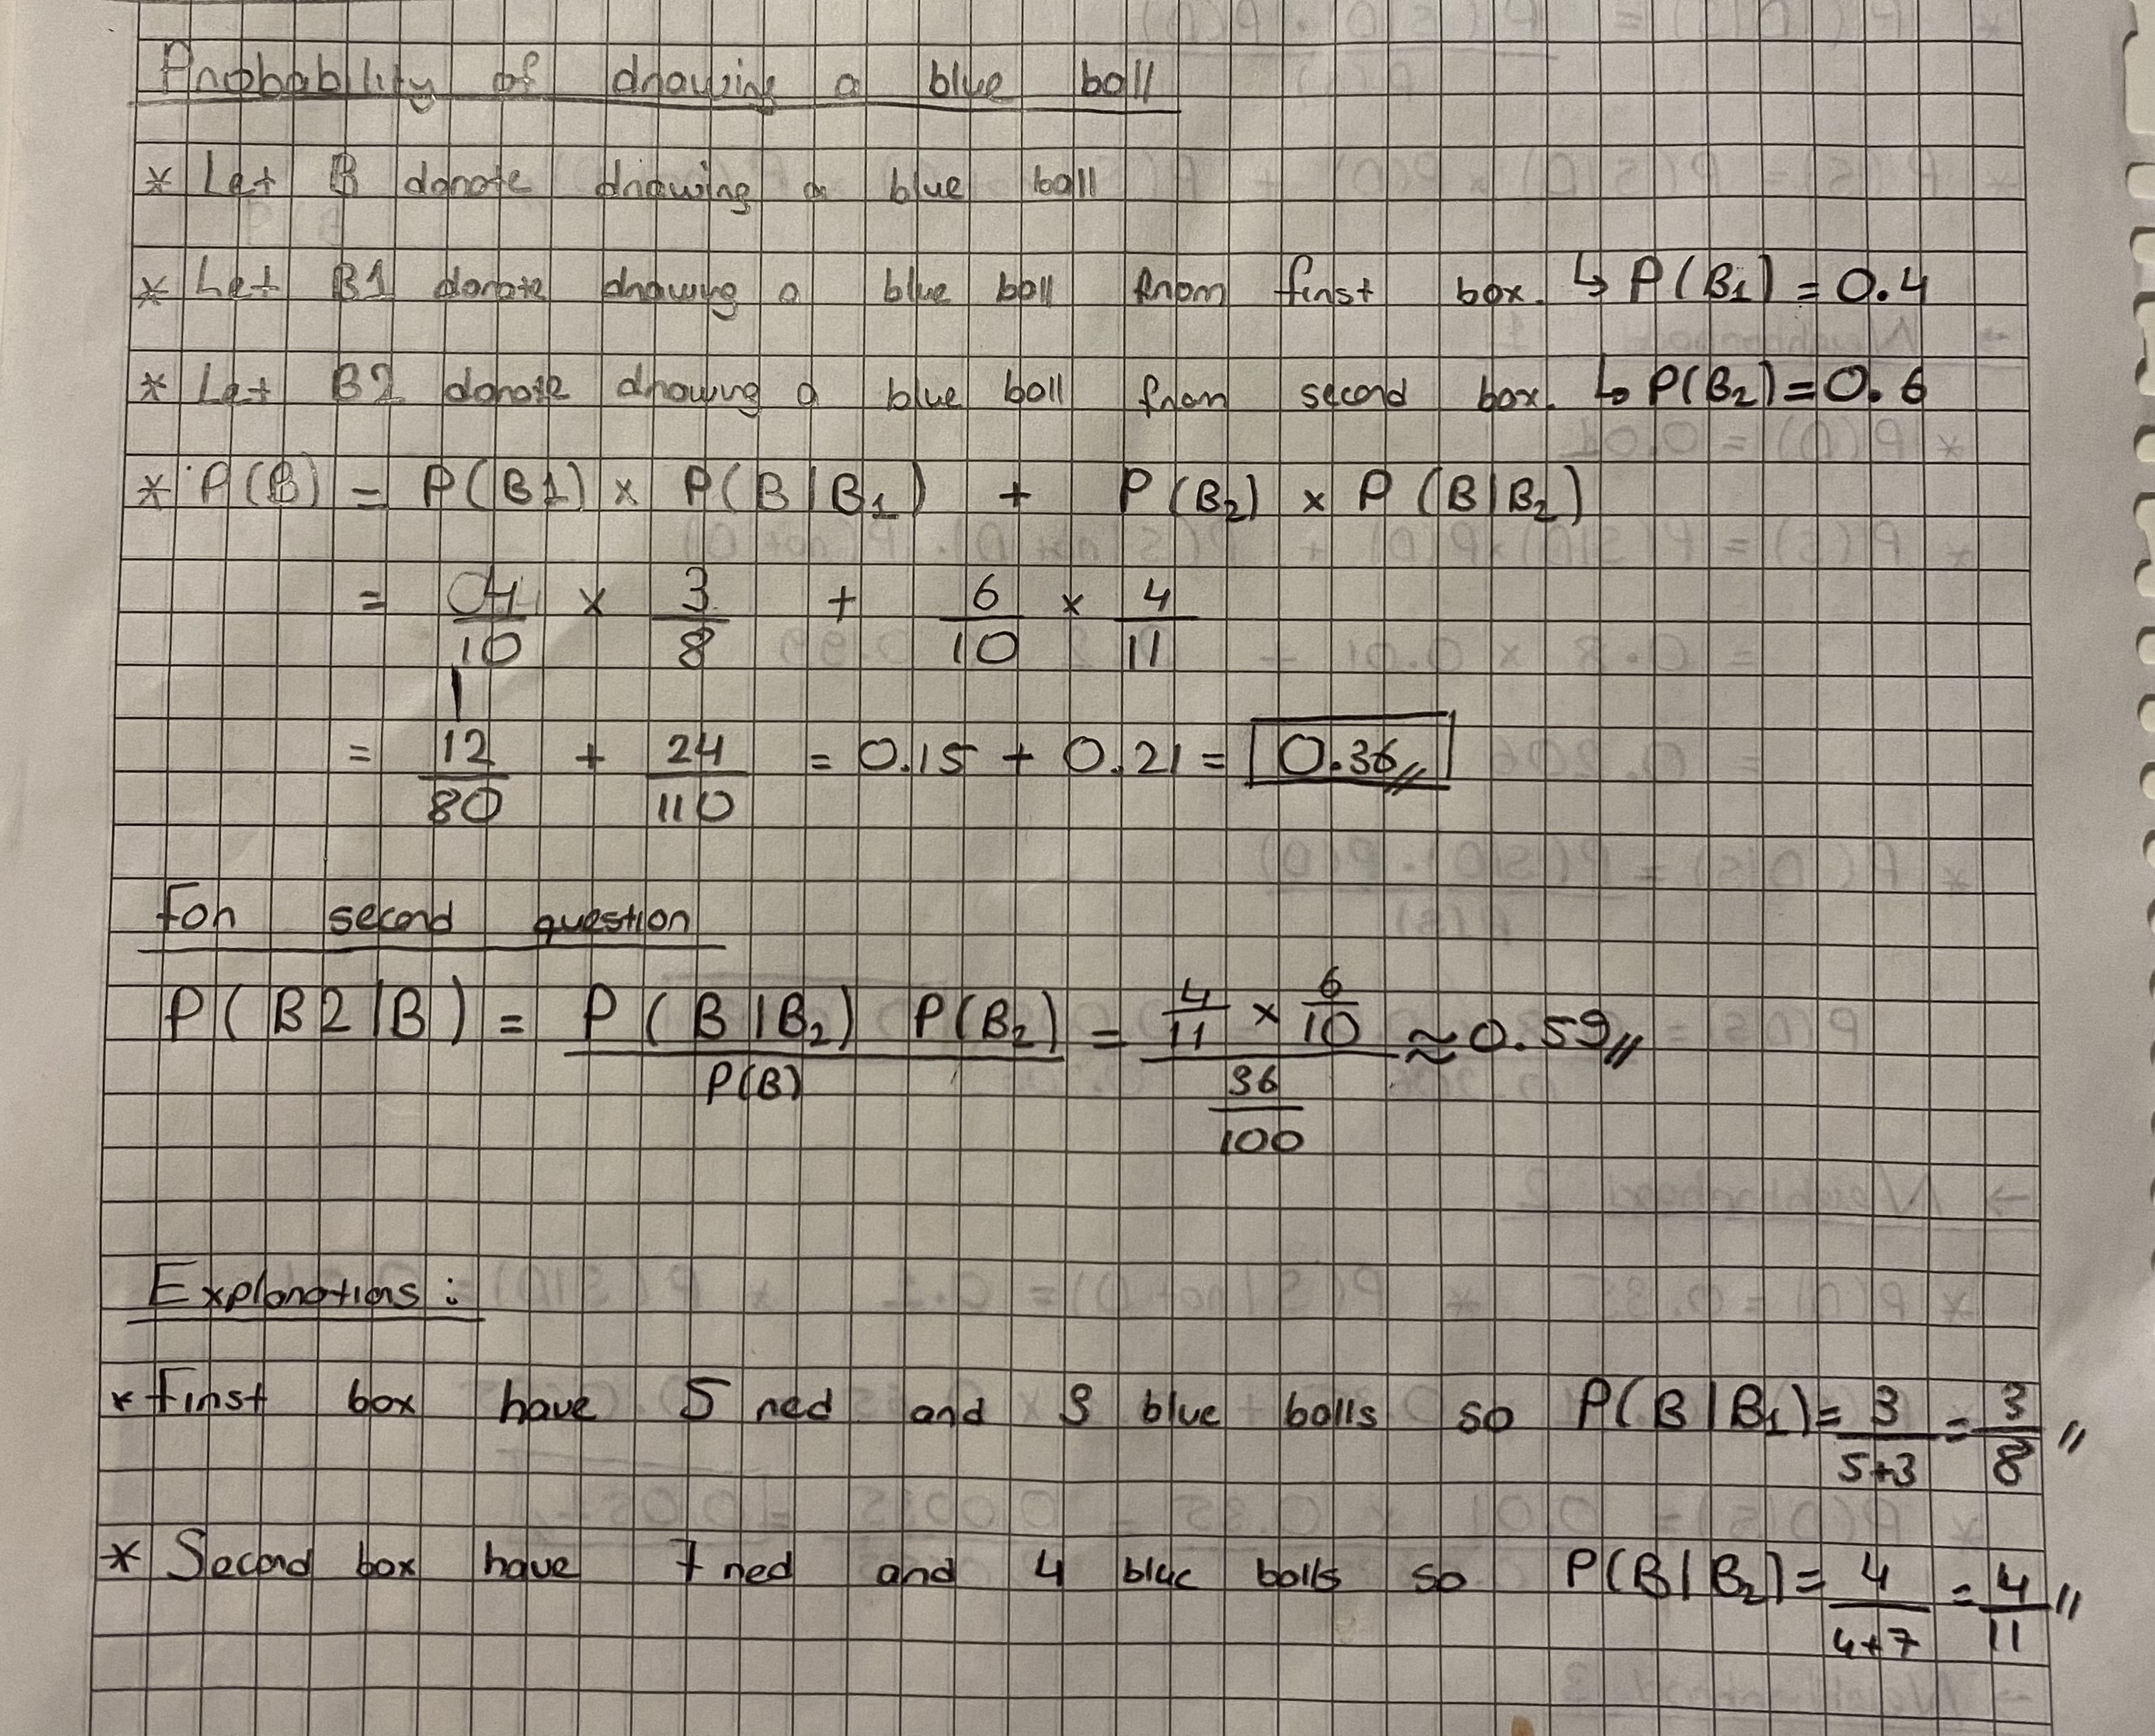 Probability of drawing a blue ball
* Let B donote drawing a blue ball
* Let B1 donote drawing a blue ball from first box. ↳ P(B₁) = 0.4
* Let B2 donote drawing a blue ball from second box. ↳ P(B₂) = 0.6
* P(B) = P(B1) x P(B|B₁) + P(B₂) x P(B|B₂)
= 04/10 x 3/8 + 6/10 x 4/11
= 12/80 + 24/110 = 0.15 + 0.21 = 0.36//
For second question
P(B2|B) = P(B|B₂) P(B₂) / P(B) = (4/11 x 6/10) / (36/100) ≈ 0.59//
Explanations:
* First box have 5 red and 3 blue balls so P(B|B₁) = 3/(5+3) = 3/8 //
* Second box have 7 red and 4 blue balls so P(B|B₂) = 4/(4+7) = 4/11 //